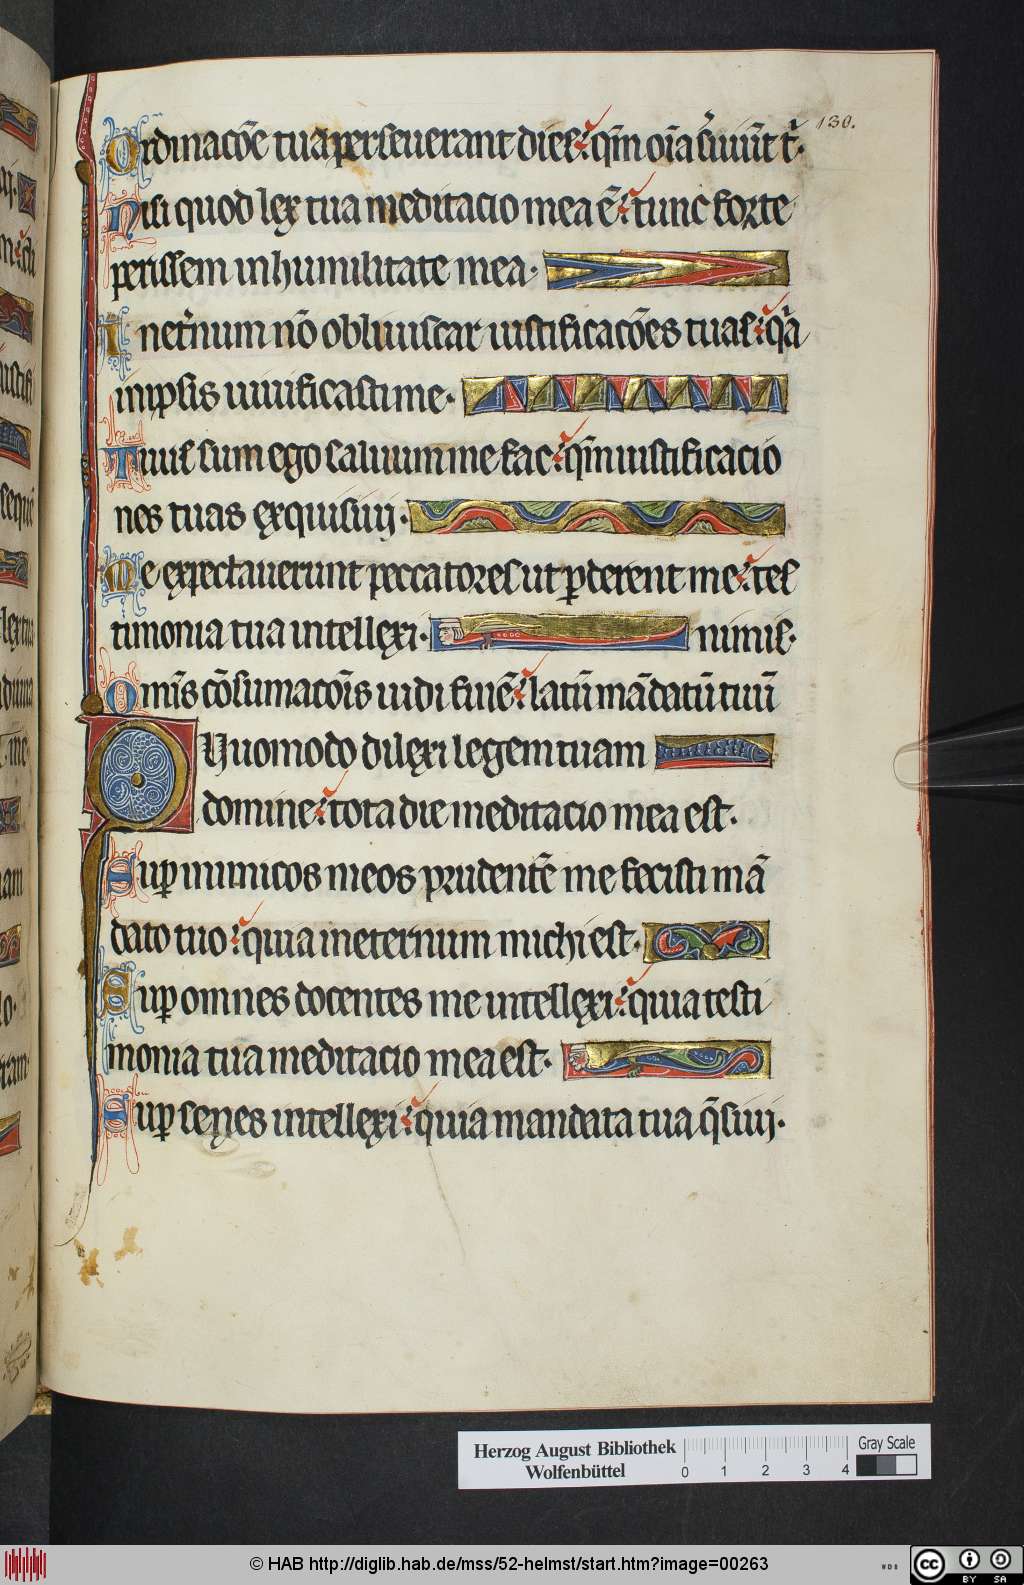 130.
Ordinacõe tua perseuerant dies: qm̃ oĩa s̃uiũt t̃.
Nisi quod lex tua meditacio mea ẽ: tunc forte
perissem in humilitate mea.
In et̾num nõ obliuiscar iustificacões tuas: qa
in ipsis uiuificasti me.
Tuus sum ego saluum me fac: qm̃ iustificacio
nes tuas exquisiui.
Me expectauerunt peccatores ut ꝑderent me: tes
timonia tua intellexi. nimis.
Omĩs cõsumacoĩs uidi finẽ: latũ mãdatũ tuũ
Quomodo dilexi legem tuam
domine: tota die meditacio mea est.
Suꝑ inimicos meos prudentẽ me fecisti mã
dato tuo: quia in eternum michi est.
Suꝑ omnes docentes me intellexi: quia testi
monia tua meditacio mea est.
Suꝑ senes intellexi: quia mandata tua q̃siui.
Herzog August Bibliothek
Wolfenbüttel
0 1 2 3 4
Gray Scale
© HAB http://diglib.hab.de/mss/52-helmst/start.htm?image=00263
WDB
cc BY SA